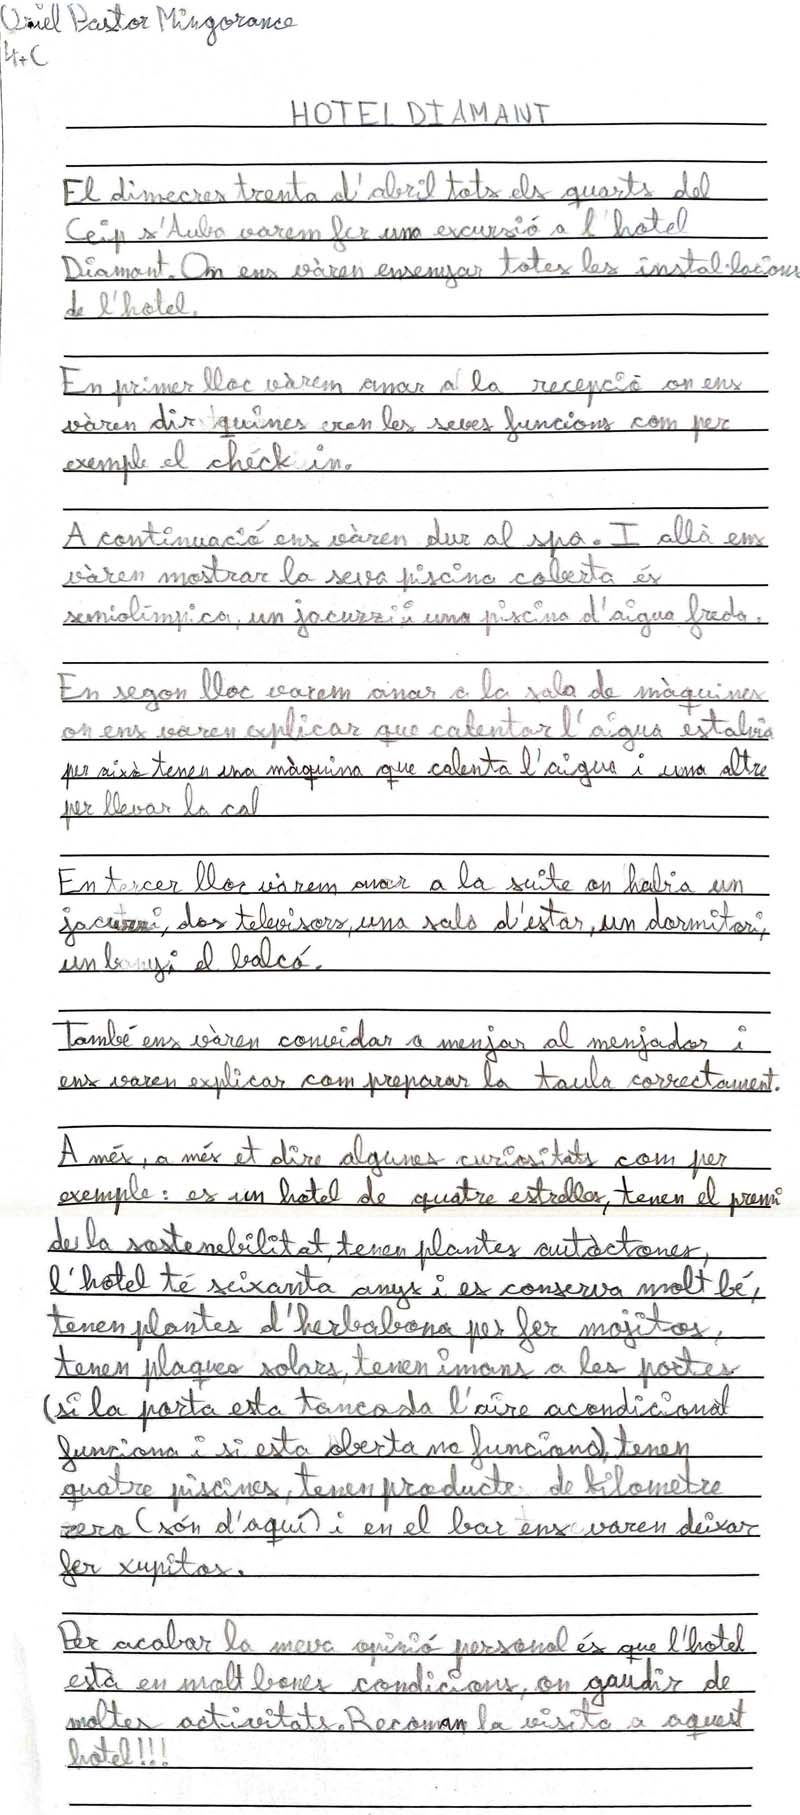 Uriel Pastor Mingorance
4tC
HOTEL DIAMANT
El dimecres trenta d'abril tots els quarts del
Ceip s'Auba varem fer una excursió a l'hotel
Diamant. On ens vàren ensenyar totes les instal·lacions
de l'hotel.
En primer lloc vàrem anar a la recepció on ens
vàren dir quines eren les seves funcions com per
exemple el chéck in.
A continuació ens vàren dur al spa. I allà ens
vàren mostrar la seva piscina coberta és
semiolímpica, un jacuzzi i una piscina d'aigua freda.
En segon lloc varem anar a la sala de màquines
on ens varen explicar que calentar l'aigua estalvia
per això tenen una màquina que calenta l'aigua i una altre
per llevar la cal
En tercer lloc vàrem anar a la suite on había un
jacuzzi, dos televisors, una sala d'estar, un dormitori,
un bany i el balcó.
També ens vàren convidar a menjar al menjador i
ens varen explicar com preparar la taula correctament.
A més, a més et dire algunes curiositats com per
exemple: es un hotel de quatre estrelles, tenen el premi
de la sostenebilitat, tenen plantes autòctones,
l'hotel té seixanta anys i es conserva molt bé,
tenen plantes d'herbabona per fer mojitos,
tenen plaques solars, tenen imans a les portes
(si la porta esta tancada l'aire acondicional
funciona i si esta oberta no funciona), tenen
quatre piscines, tenen producte de kilometre
zero (són d'aquí) i en el bar ens varen deixar
fer xupitos.
Per acabar la meva opinió personal és que l'hotel
està en molt bones condicions, on gaudir de
moltes activitats. Recoman la visita a aquest
hotel!!!